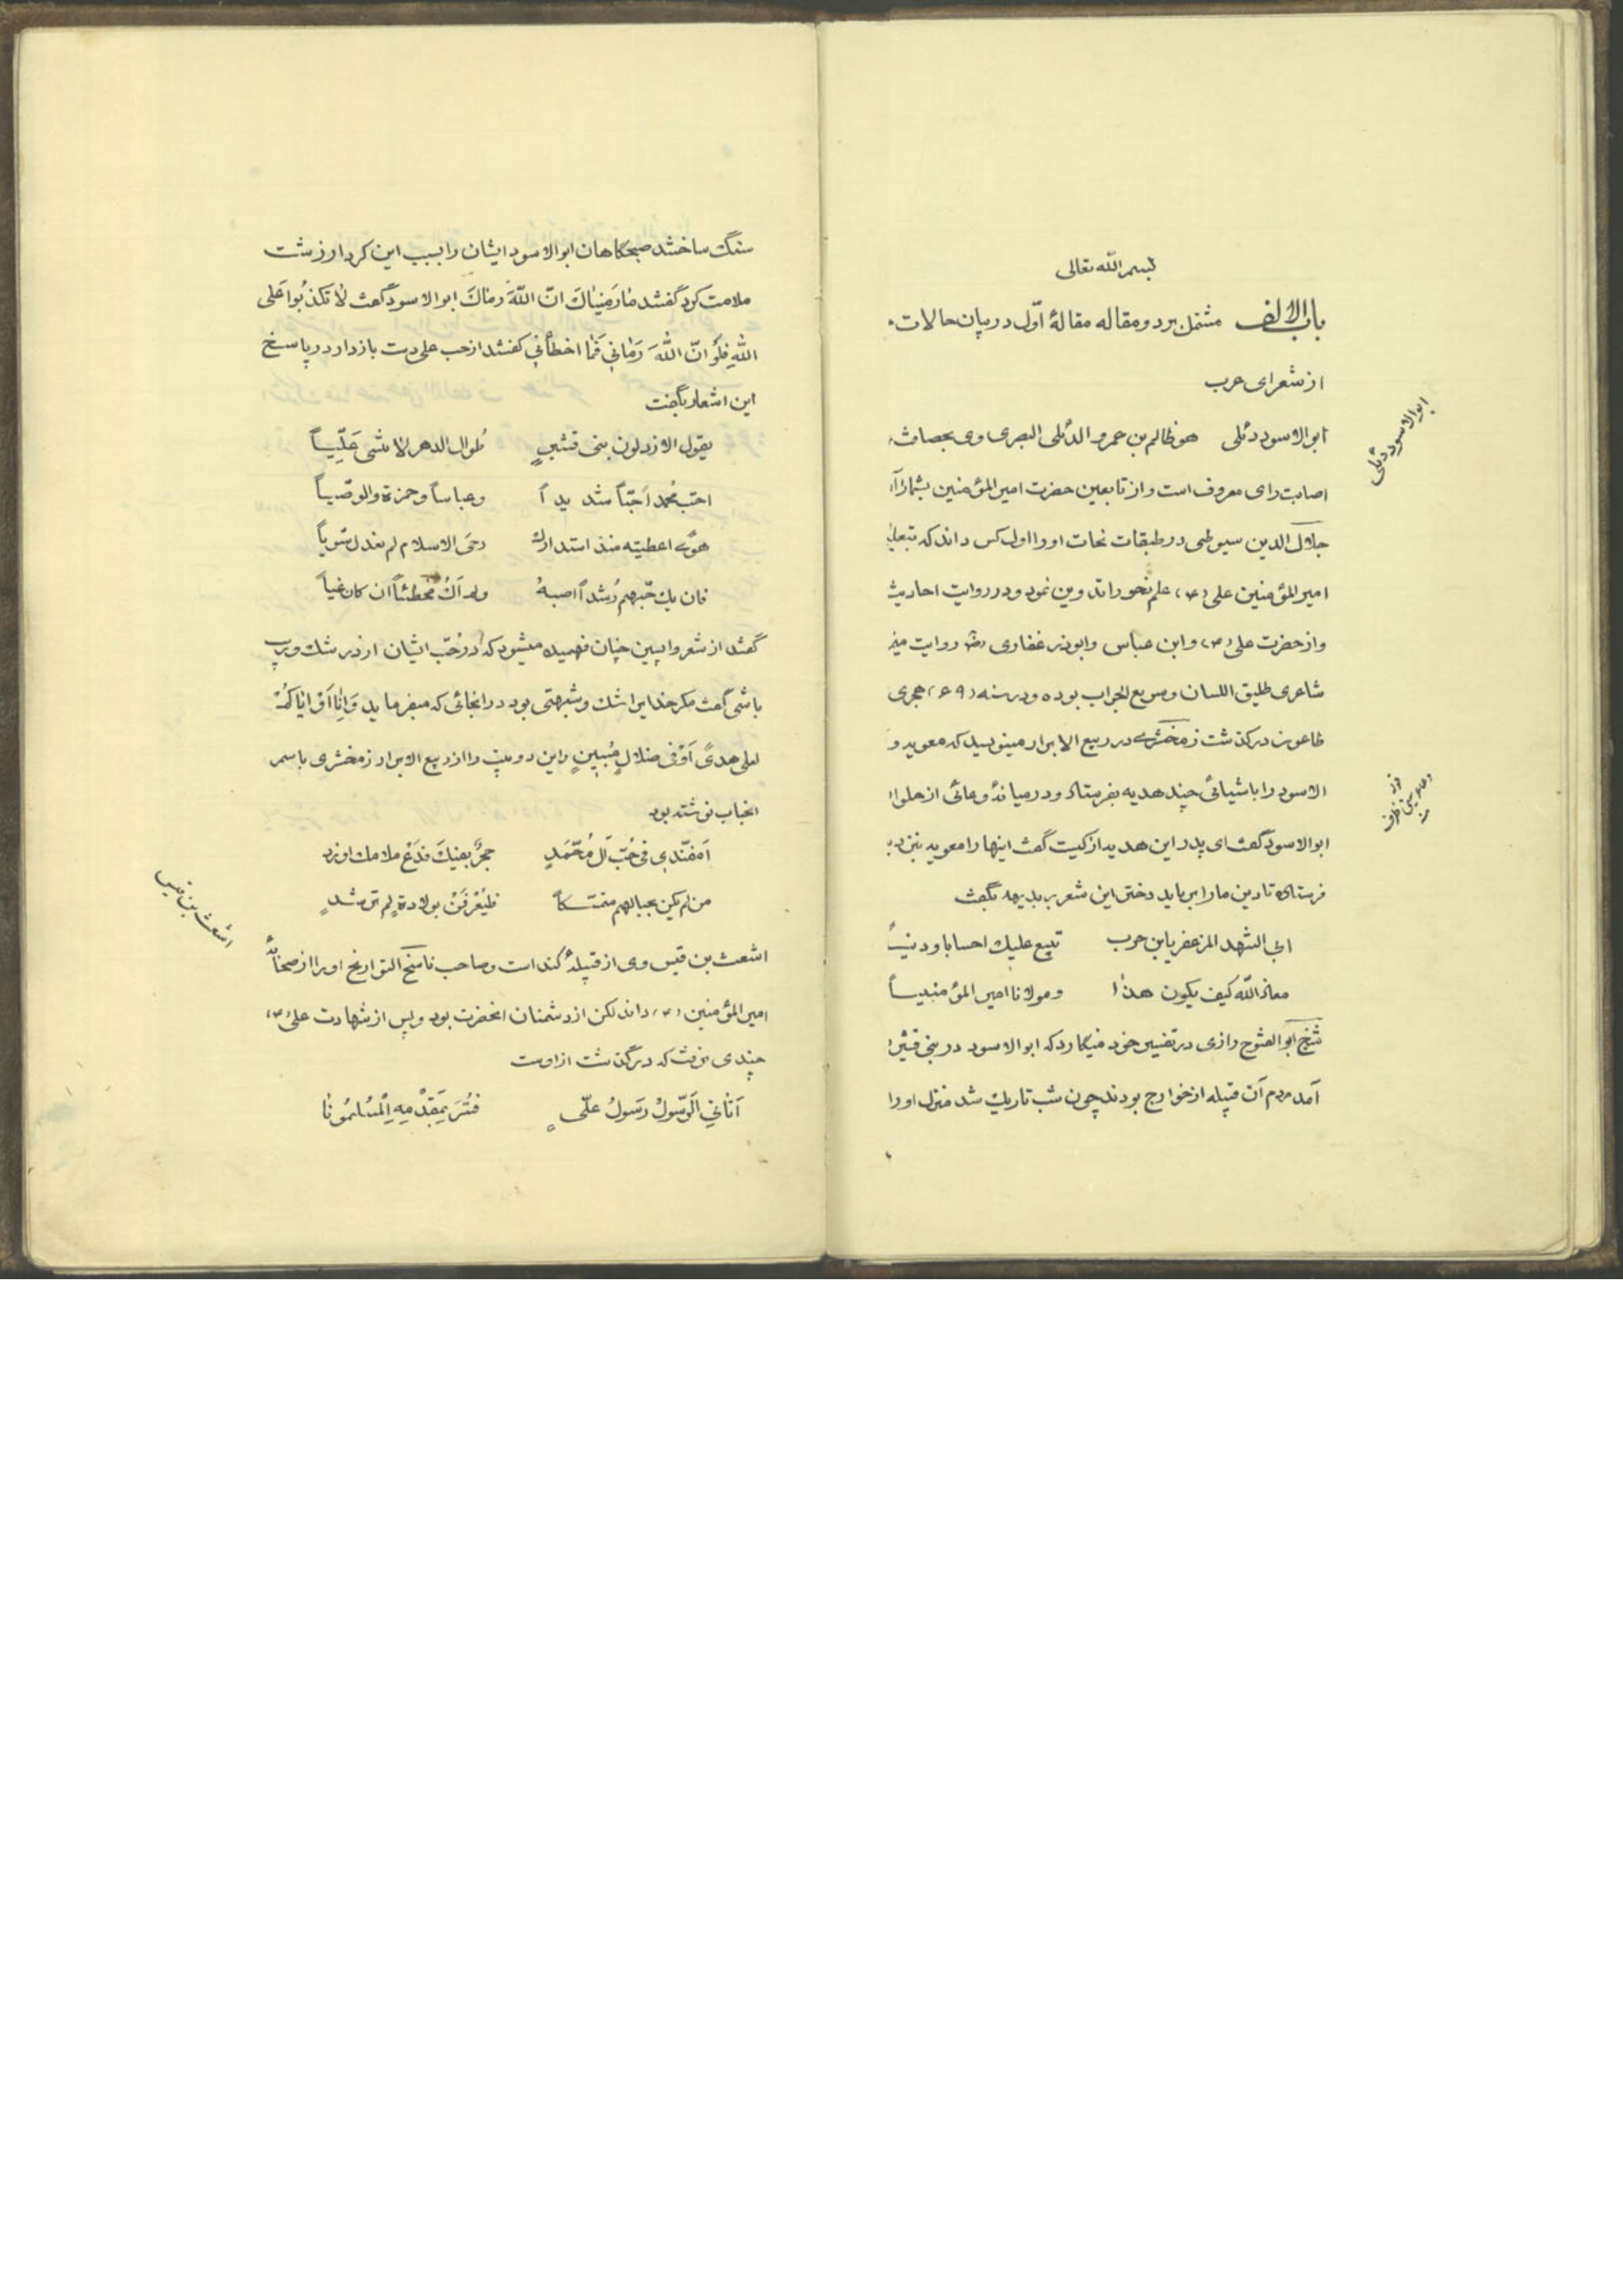 بسم الله تعالی
باب الالف مشتمل بر دو مقاله مقالهٔ اوّل در بیان حالات
از شعرای عرب
ابو الاسود دئلی هو ظالم بن عمرو الدئلی البصری وی بحصافت
ابو الاسود دئلی
اصابت رای معروف است و از تابعین حضرت امیر المؤمنین بشمار آ
جلال الدین سیوطی در طبقات نحات او را اول کس داند که بتعلیم
امیر المؤمنین علی (ع) علم نحو را تدوین نمود و در روایت احادیث
و از حضرت علی (ع) و ابن عباس و ابوذر غفاری رض روایت
شاعری طلیق اللسان و سریع الجواب بوده و در سنه (۶۹) هجری
طاعون درگذشت زمخشری در ربیع الابرار مینویسد که معویه
الاسود را باشیائی چند هدیه بفرستاد و در میانهٔ وعائی از حلوا
ابو الاسود گفت ای پدر این هدیه از کیست گفت اینها را معویه
فرستاده تا دین ما را بر باید دختر این شعر بر بدیهه بگفت
ابی الشهد المزعفر یا بن حرب نبیع علیک احسابا و دیناً
معاذ الله کیف یکون هذا و مولانا امیر المؤمنیناً
شیخ ابو الفتوح رازی در تفسیر خود مینگارد که ابو الاسود در بنی قشیر
آمد مردم آن قبیله از خوارج بودند چون شب تاریک شد منزل او را
سنگ ساختند صبحگاهان ابو الاسود ایشان را بسبب این کردار زشت
ملامت کرد گفتند ما رَمَیناکَ انّ اللّهَ رماکَ ابو الاسود گفت لا تکذبُوا عَلی
اللّهِ فلَو انّ اللّهَ رَمانی فَما اخطأنی گفتند از حب علی دست بازدار در پاسخ
این اشعار بگفت
یقول الارذلون بنی قشیرٍ طُوال الدهر لا تنسی عَلیّاً
احبّ مُحمد اً حبّاً شدیداً و عباساً و حمزة والوصّیاً
هویً اعطیته منذ استدارت رحی الاسلام لم یعدل سَویاً
فان یک حبّهم رُشداً اصبهُ و لم اَکُ مخطئاً ان کان غیاً
گفتند از شعر واپسین چنان فهمیده میشود که در حُبّ ایشان از در شک و ریب
باشی گفت مگر خدایرا شک و شبهتی بود در انجائی که میفرماید وَ اِنّا اَوْ ایّاکُمْ
لعلی هدیً اَوْ فی ضلالٍ مُبینٍ و این دو بیت را از ربیع الابرار زمخشری باسم
انجناب نوشته بود
اَمفنّدی فی حُبّ آل مُحَمّدٍ حجرٌ بفیکَ فدَعْ ملامک او زد
من لم یکن بحبالهم متمسّکاً فلیَعْرِفَنْ بولادةٍ لم ترشدٍ
اشعث بن قیس وی از قبیلهٔ کنده است و صاحب ناسخ التواریخ او را از صحابهٔ
اشعث بن قیس
امیر المؤمنین (ع) داند لکن از دشمنان انحضرت بود و پس از شهادت علی (ع)
چندی نزیست که درگذشت از اوست
اَتانی الَرّسولُ رسَولُ علیّ فسُرَّ بِمَقدْمِهِ الْمسُلمُونا